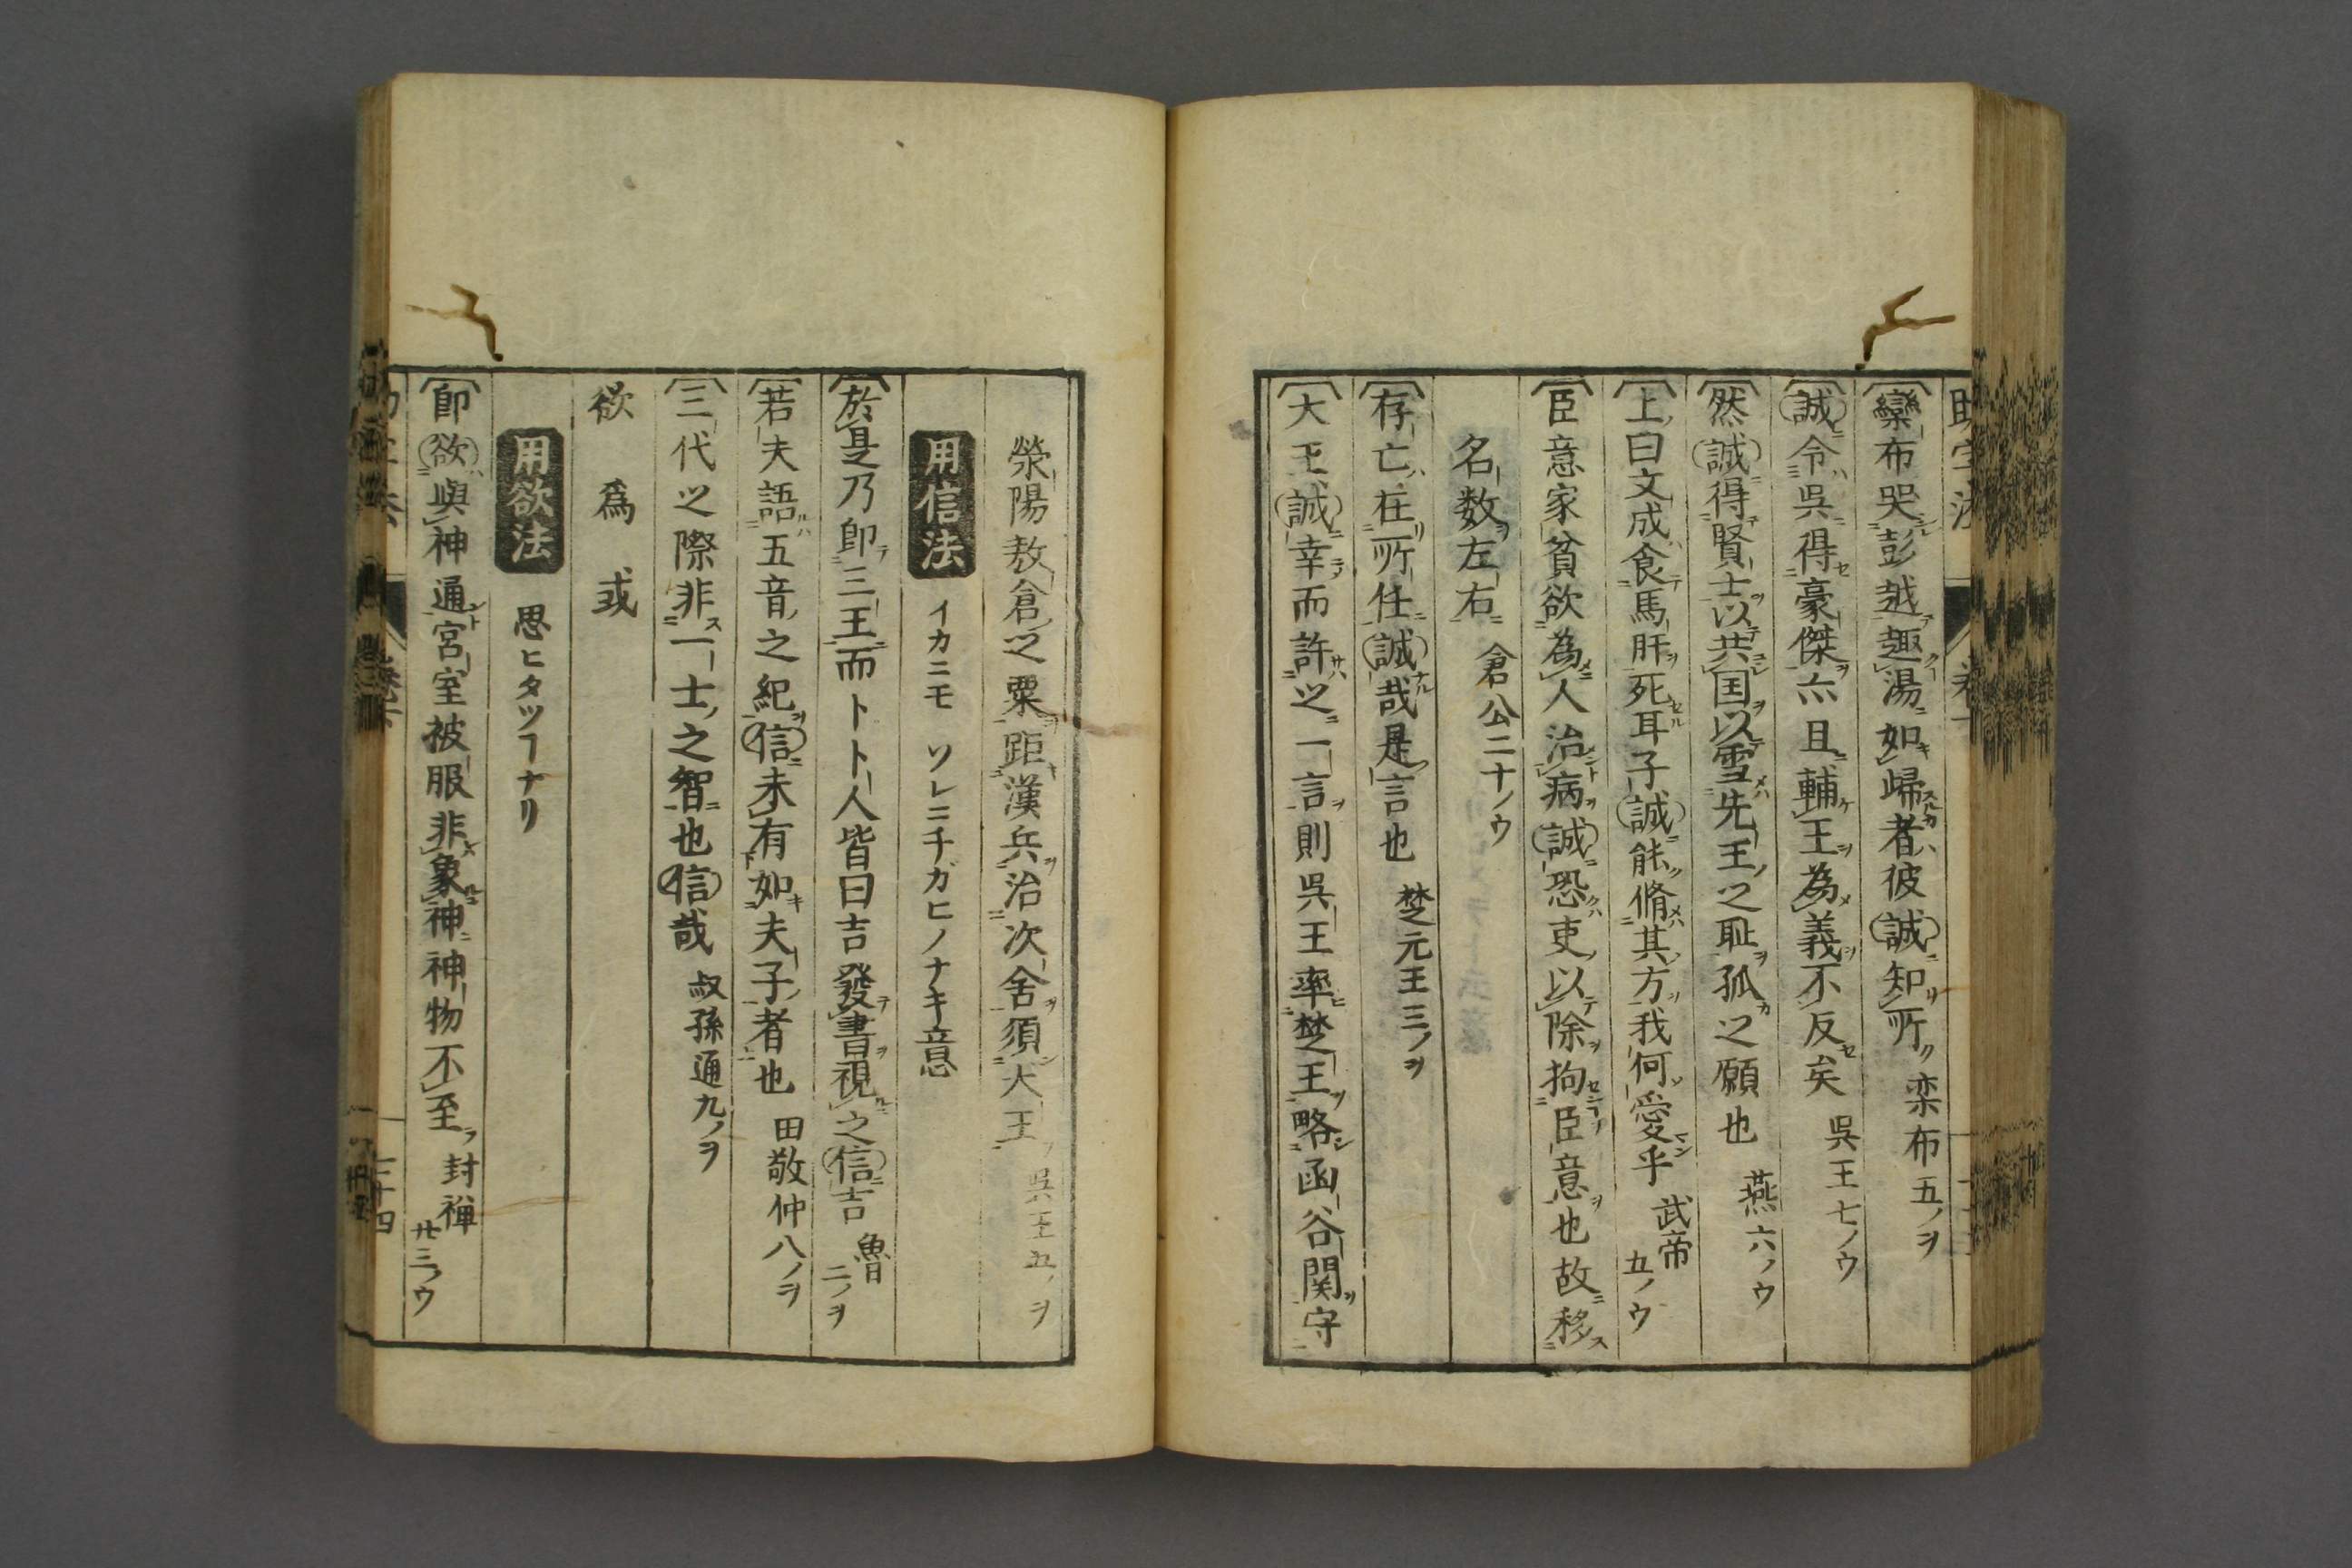 欒布哭彭越趣湯如歸者彼誠知所 栾布五ノヲ
誠令呉得豪傑亦且輔王為義不反矣 呉王七ノウ
然誠得賢士以共国以雪先王之耻孤之願也 燕六ノウ
上曰文成食馬肝死耳子誠能脩其方我何愛乎 武帝五ノウ
臣意家貧欲為人治病誠恐吏以除拘臣意也故移
名数左右 倉公二十ノウ
存亡在所任誠哉是言也 楚元王三ノヲ
大王誠幸而許之一言則呉王率楚王略函谷関守
滎陽敖倉之粟距漢兵治次舍須大王 呉王五ノヲ
用信法 イカニモ ソレニチガヒノナキ意
於是乃即三王而卜卜人皆曰吉發書視之信吉 魯二ノヲ
若夫語五音之紀信未有如夫子者也 田敬仲八ノヲ
三代之際非一士之智也信哉 叔孫通九ノヲ
欲 為 或
用欲法 思ヒタツヿナリ
即欲與神通宮室被服非象神神物不至 封禅廿三ノウ